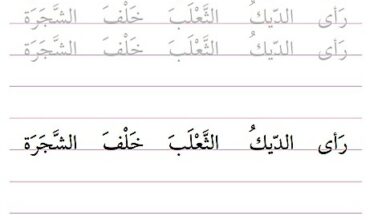 رَأى الدّيكُ الثَّعْلَبَ خَلْفَ الشَّجَرَة
رَأى الدّيكُ الثَّعْلَبَ خَلْفَ الشَّجَرَة
رَأى الدّيكُ الثَّعْلَبَ خَلْفَ الشَّجَرَة